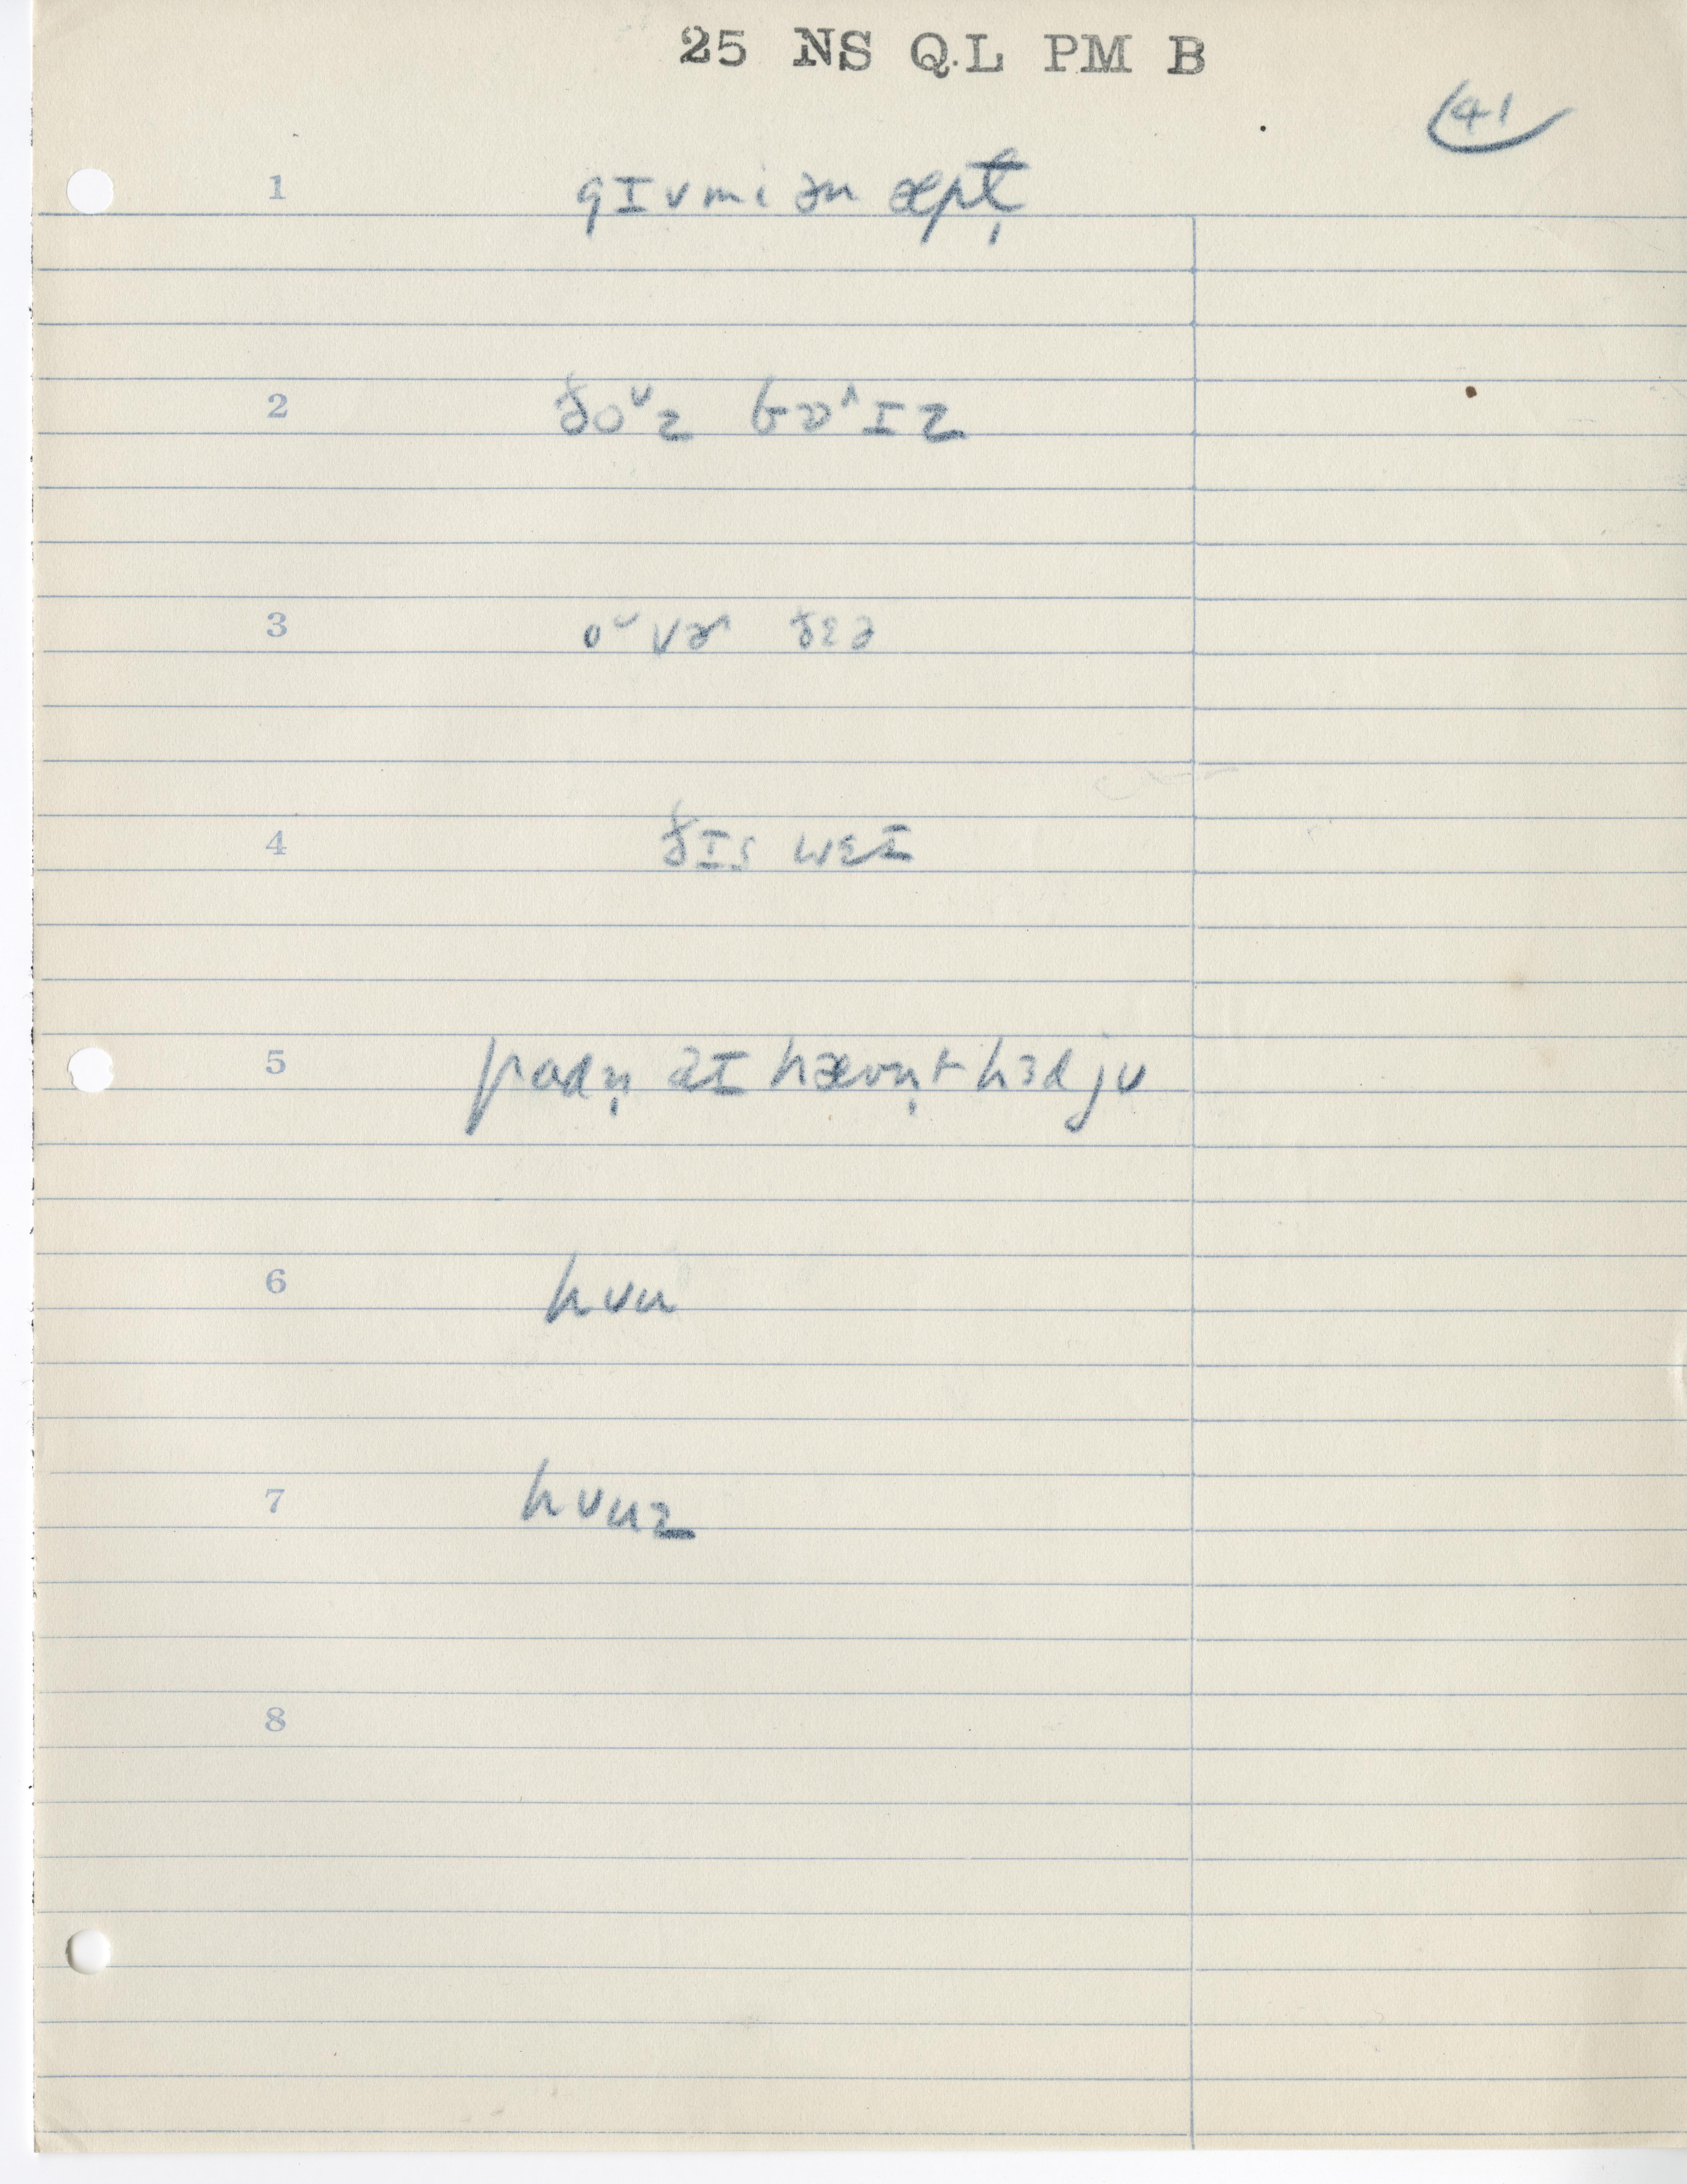 25 NS QL PM B
41
1 gɪvmi ən æpl̩
2 ðoᵕz bɒ^ɪz
3 oᵕvɚ ðɛə
4 ðɪs wɛɪ
5 padn̩ aɪ hævn̩t hɜd ju
6 hvu
7 hvuz
8